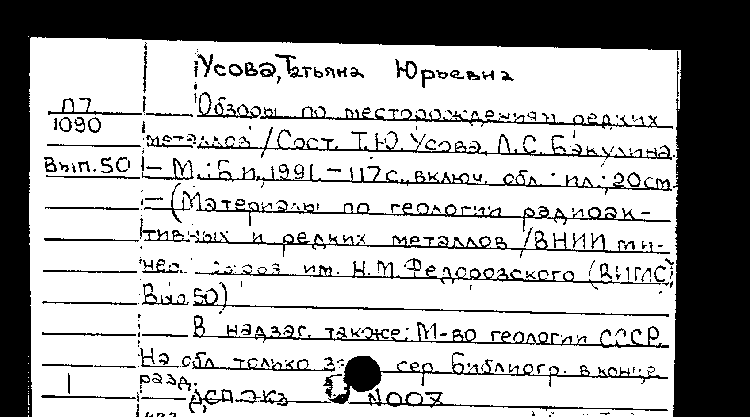 Усова, Татьяна Юрьевна
П7
1090
Вып. 50
Обзоры по месторождениям редких
металлов / Сост. Т.Ю. Усова, Л.С. Бакулина.
– М.: Б.и., 1991. – 117 с., включ. обл. : ил.; 20 см.
– (Материалы по геологии радиоак-
тивных и редких металлов / ВНИИ ми-
нер. им. Н.М. Федоровского (ВИМС);
Вып 50)
В надзаг. также: М-во геологии СССР.
На обл. только сер. Библиогр. в конце
разд.
1